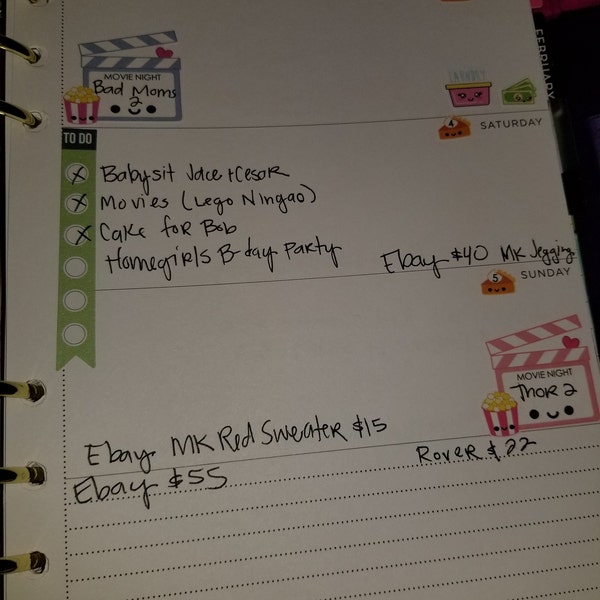 FEBRUARY
MOVIE NIGHT
Bad Moms
2
LAUNDRY
TO DO
4 SATURDAY
x Babysit Jace + Cesar
x Movies (Lego Ningao)
x Cake for Bob
Homegirls B-day Party
Ebay $40 MK Jeggings
5 SUNDAY
MOVIE NIGHT
Thor 2
Ebay MK Red Sweater $15
Rover $22
Ebay $55